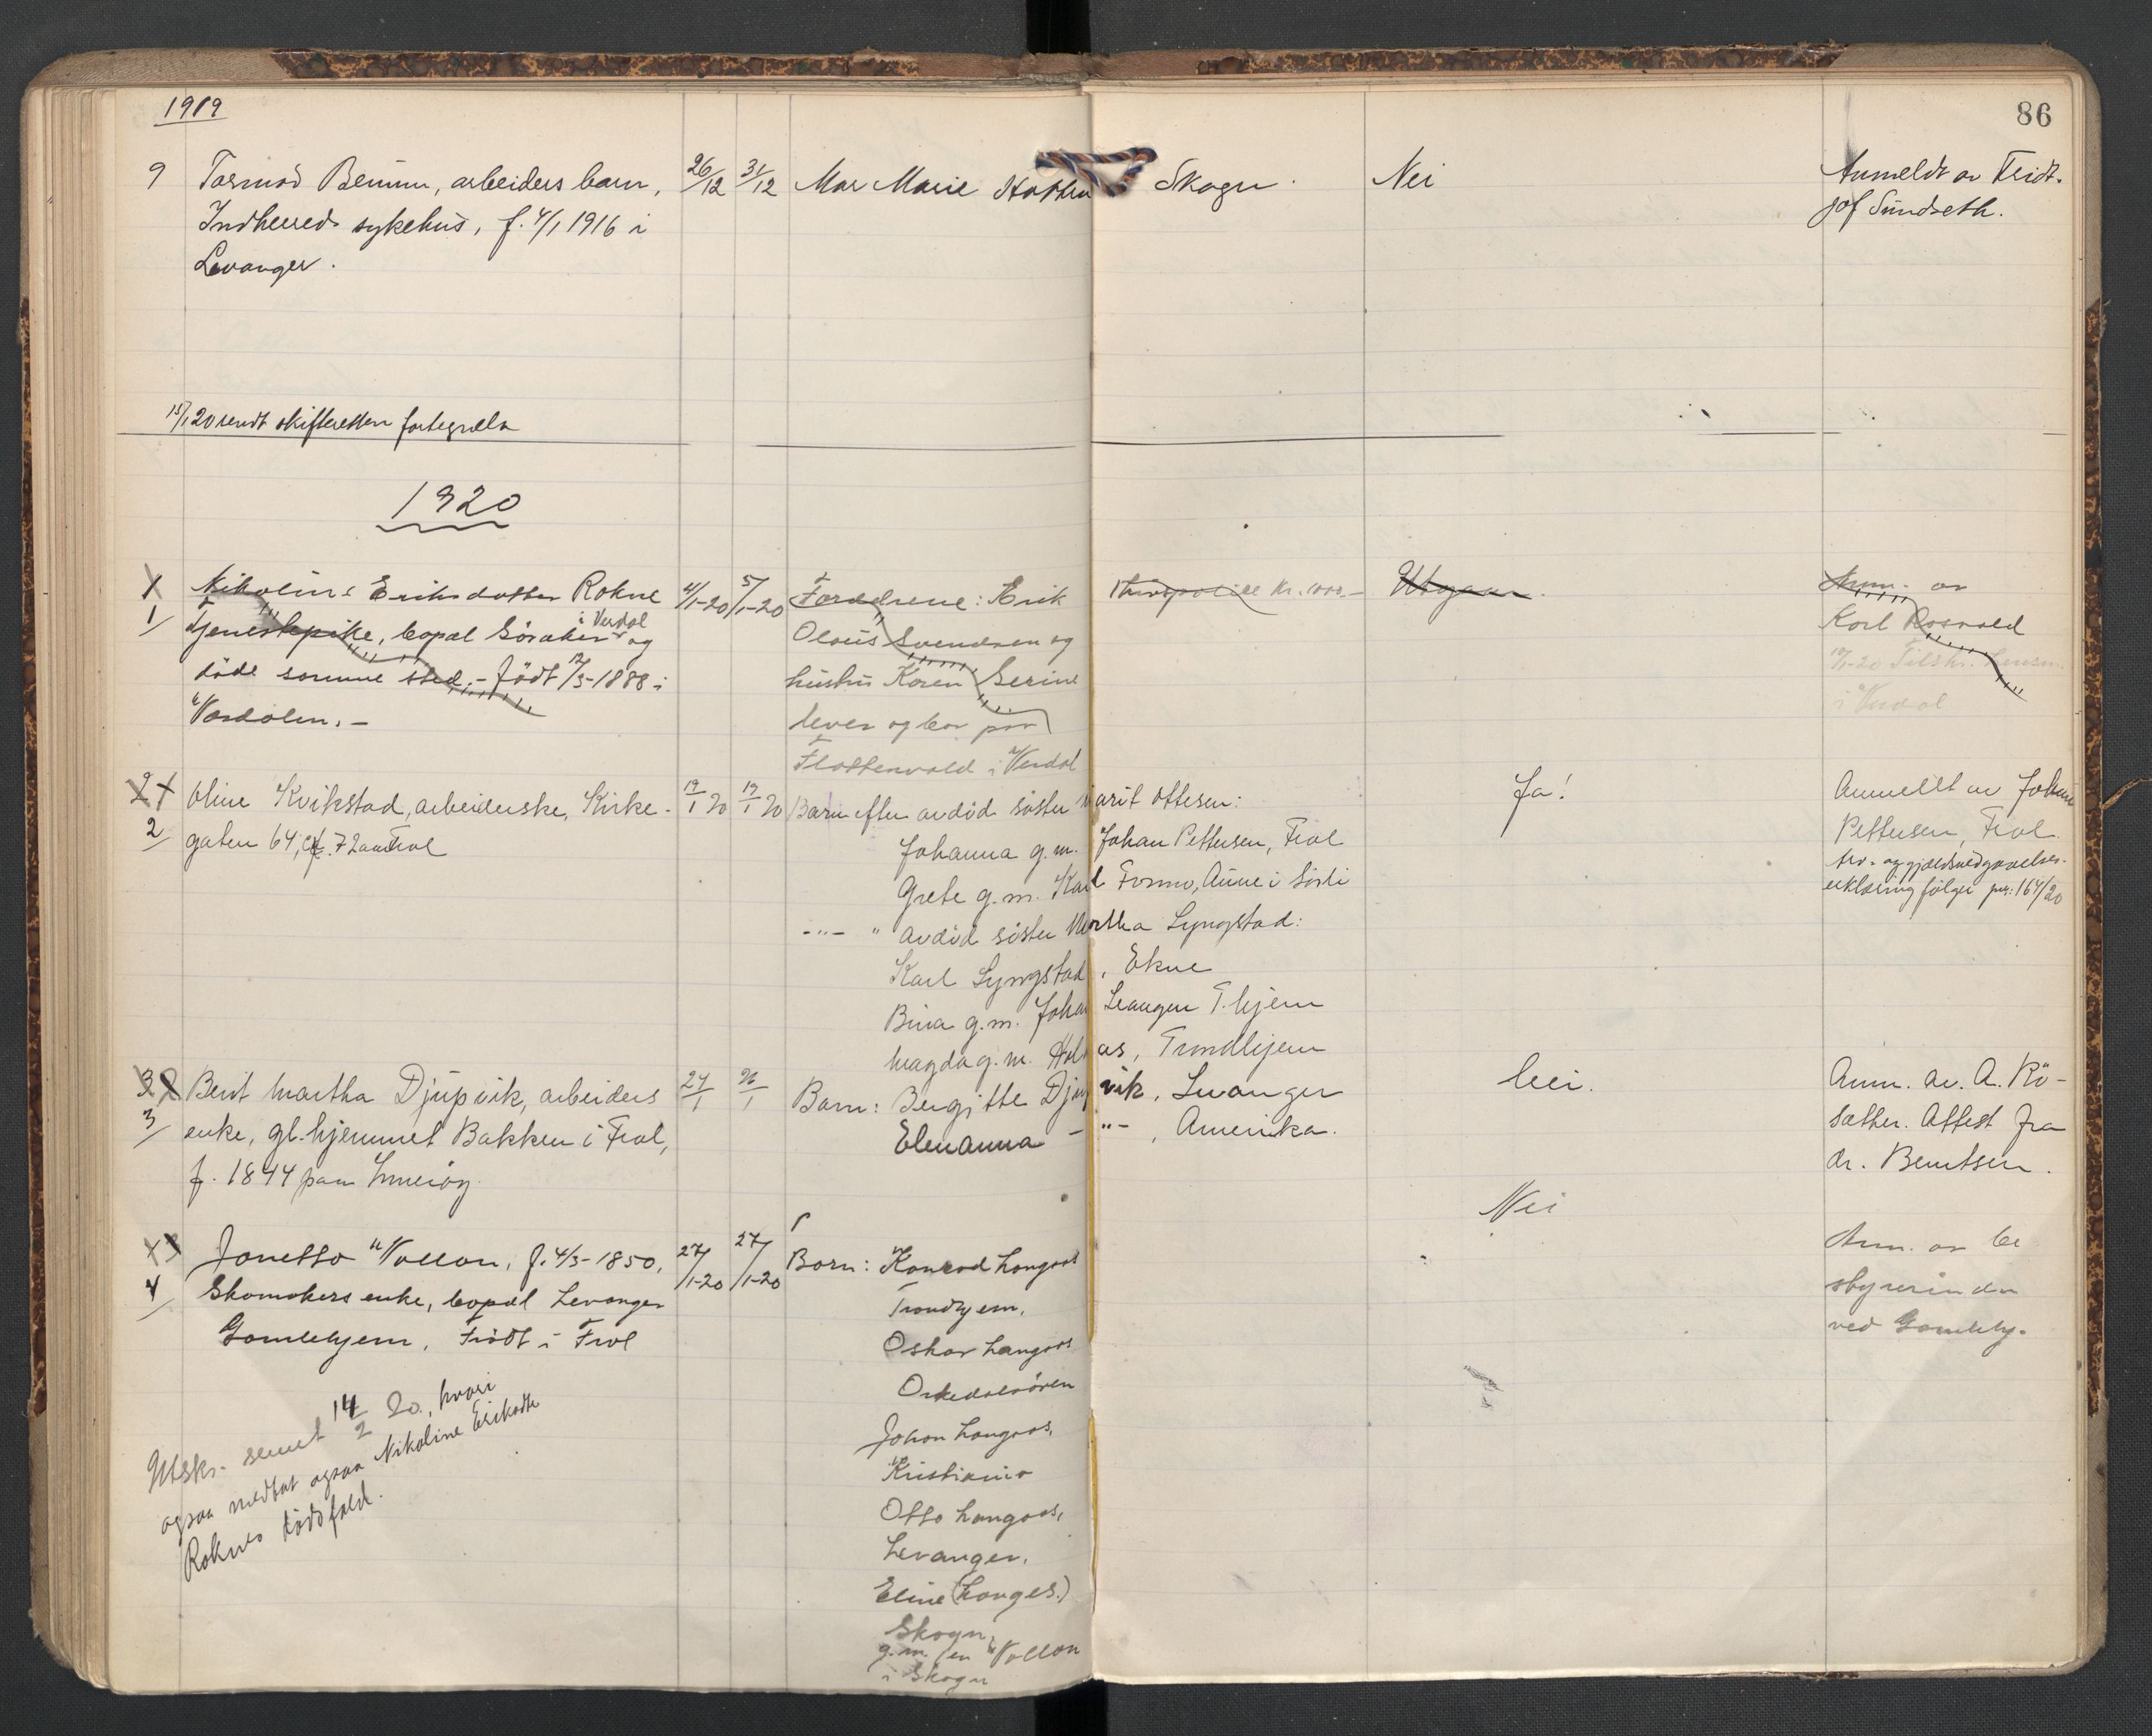 1919
86
9 Tormod Bemun, arbeiders barn, 26/12 31/12 Mor Marie Skogn. Nei Anmeldt av Fridt-
Indherreds sykehus, f. 4/1 1916 i jof Sundseth.
Levanger.
15/1 20 sendt skifteretten fortegnels
1920
1 Nikoline Eriksdatter Rokne 4/1-20 5/1-20 Forældrene: Erik Livspolice Kr. 1000.- Utgaar. Anm. av
1/ Tjenestepike, bopæl Söraker i Verdal og Olaus Svendsen og Karl Rosvold
döde samme sted.- Födt 12/3-1888 i hustru Karen Serine 12/1-20 Tilskr. Lensm.
Værdalen.- lever og bor paa i Verdal
Flottenvold i Verdal
2 1 Oline Kvikstad, arbeiderske, Kirke- 19/1 20 19/1 20 Barn efter avdöd söster Marit Ottesen: Ja! Anmeldt av Johan
2/ gaten 64, f. 72 aar Frol Johanna g.m. Johan Pettersen, Frol Pettersen, Frol.
Grete g.m. Karl Formo, Aune i Sørli Arv- og gjældsvedgaaelses-
erklæring følger pr: 164/20
-"- " avdöd söster Martha Lyngstad:
Karl Lyngstad, Ekne
Bina g.m. Johan Leangen T.hjem
Magda g.m. Trondhjem
3 2 Berit Martha Djupvik, arbeiders 24/1 26/1 Barn: Bergitte Djupvik, Levanger Nei. Anm. av. A. Rö-
3/ enke, gl.hjemmet Bakken i Frol, Elenanna -"-, Amerika. sæther. Attest fra
f. 1844 paa dr. Berntsen.
3 Janetta Vollan, f. 4/3-1850, 27/1-20 27/1-20 Barn: Konrad Langaas Nei Anm. av be
4/ Skomakers enke, bopæl Levanger Trondhjem, styrerinden
Gamlehjem, Født i Frol Oskar Langaas ved Gamlehj.
Orkedalsören
Johan Langaas,
Kristiania
Otto Langaas,
Levanger.
Eline (Langås.)
Skogn,
g.m. en Vollan
i Skogn
Utskr. sendt 14/2 20, hvori
ogsaa medtat ogsaa Nikoline Eriksdtr
Roknes dödsfald.